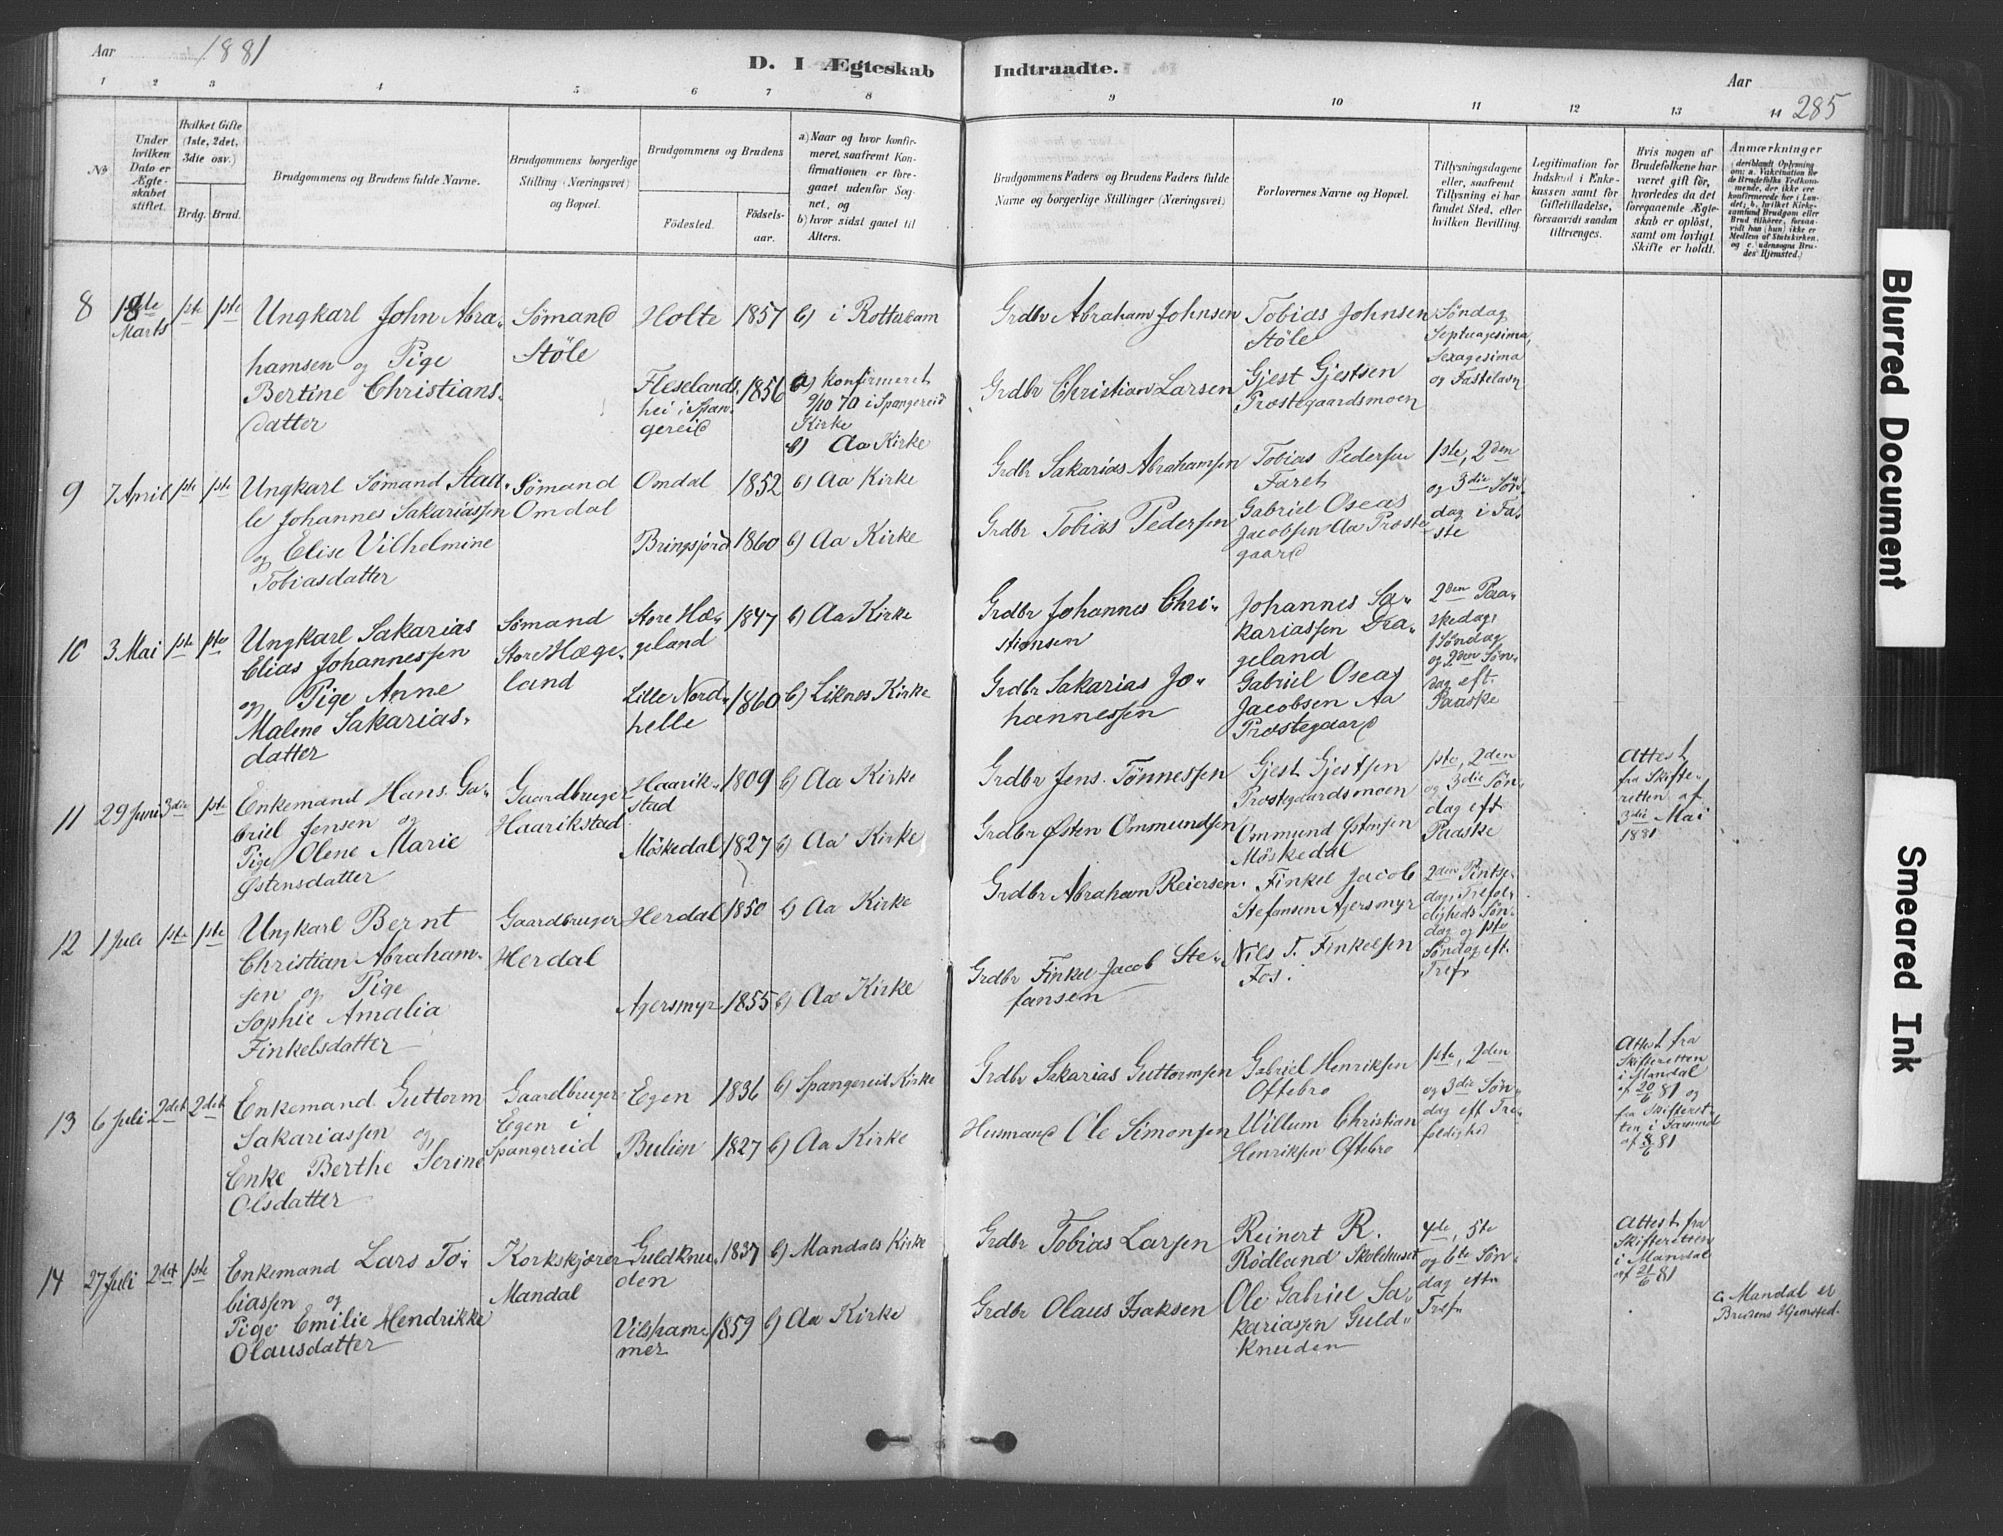 Aar 1881
D. I Ægteskab
Indtraadte.
Aar
285
1 2 3 4 5 6 7 8 9 10 11 12 13 14
No
Under
hvilken
Dato er
Ægte-
skabet
stiftet.
Hvilket Gifte
(1ste, 2det,
3die osv.)
Brdg. Brud.
Brudgommens og Brudens fulde Navne.
Brudgommens borgerlige
Stilling (Næringsvei)
og Bopæl.
Brudgommens og Brudens
Fødested.
Fødsels-
aar.
a) Naar og hvor konfir-
meret, saafremt Kon-
firmationen er fore-
gaaet udenfor Sog-
net, og
b) hvor sidst gaaet til
Alters.
Brudgommens Faders og Brudens Faders fulde
Navne og borgerlige Stillinger (Næringsvei)
Forlovernes Navne og Bopæl.
Tillysningsdagene
eller, saafremt
Tillysning ei har
fundet Sted, efter
hvilken Bevilling.
Legitimation for
Indskud i Enke-
kassen samt for
Giftetilladelse,
forsaavidt saadan
tiltrænges.
Hvis nogen af
Brudefolkene har
været gift før,
hvorledes da det
foregaaende Ægte-
skab er opløst,
samt om lovligt
Skifte er holdt.
Anmærkninger
(deriblandt Oplysning
om: a. Vakcination for
de Brudefolks Vedkom-
mende, der ikke ere
konfirmerede her i Lan-
det; b. hvilket Kirke-
samfund Brudgom eller
Brud tilhører, forsaa-
vidt han (hun) ikke er
Medlem af Statskirken,
og c. udensogns Bru-
des Hjemsted.)
8
Marts
1ste 1ste
Ungkarl John Abra-
hamsen og Pige
Bertine Christians-
datter
Sømand
Støle
Holte 1857
b) i Rotterdam
Fleselands-
hei i Span-
gereid
1856
a) konfirmeret
9/10 70 i Spangereid
Kirke
b) Aa Kirke
Grdbr Abraham Johnsen
Grdbr Christian Larsen
Tobias Johnsen
Støle
Gjest Gjestsen
Præstegaardsmoen
Søndag
Septuagesima,
Sexagesima
og Fastelavn
9
7 April
1ste 1ste
Ungkarl Sømand Staal-
le Johannes Sakariassen
og Elise Vilhelmine
Tobiasdatter
Sømand
Omdal
Omdal 1852 b) Aa Kirke
Bringsjord 1860 b) Aa Kirke
Grdbr Sakarias Abrahamsen
Grdbr Tobias Pedersen
Tobias Pedersen
Faret
Gabriel Oseas
Jacobsen Aa Præste-
gaard
1ste, 2den
og 3die Søn-
dag i Fa-
ste
10
3 Mai
1ste 1ste
Ungkarl Sakarias
Elias Johannessen
og Pige Anne
Malene Sakarias-
datter
Sømand
Store Hæge-
land
Store Hæ-
geland
1847 b) Aa Kirke
Lille Nord-
helle
1860 b) Liknes Kirke
Grdbr Johannes Chri-
stiansen
Grdbr Sakarias Jo-
hannessen
Johannes Sa-
kariassen Dra-
geland
Gabriel Oseas
Jacobsen Aa
Præstegaard
2den Paa-
skedag,
1 Søndag
og 2den Søn-
dag eft.
Paaske
11
29 Juni
3die 1ste
Enkemand Hans Ga-
briel Jensen og
Pige Olene Marie
Østensdatter
Gaardbruger
Haarikstad
Haarik-
stad
1809 b) Aa Kirke
Møskedal 1827 b) Aa Kirke
Grdbr Jens Tønnessen
Grdbr Østen Ommundsen
Gjest Gjestsen
Præstegaardsmoen
Ommund Østensen
Møskedal
1ste, 2den
og 3die Søn-
dag eft
Paaske
Attest
fra Skifte-
retten af
3die Mai
1881
12
1 Juli
1ste 1ste
Ungkarl Bernt
Christian Abraham-
sen og Pige
Sophie Amalia
Finkelsdatter
Gaardbruger
Herdal
Herdal 1850 b) Aa Kirke
Agersmyr 1855 b) Aa Kirke
Grdbr Abraham Reiersen
Grdbr Finkel Jacob Ste-
fansen
Finkel Jacob
Stefansen Agersmyr
Nils T. Finkelsen
Fos.
2den Pintse-
dag, Trefol-
digheds Søn-
dag og 1ste
Søndag eft.
Tref.
13
6 Juli
2det 2det
Enkemand Guttorm
Sakariassen og
Enke Berthe Serine
Olsdatter
Gaardbruger
Egen i
Spangereid
Egen 1836 b) Spangereid Kirke
Bulien 1827 b) Aa Kirke
Grdbr Sakarias Guttormsen
Husmand Ole Simonsen
Gabriel Henriksen
Oftebro
Willum Christian
Henriksen Oftebro
1ste, 2den
og 3die Søn-
dag eft Tre-
foldighed
Attest fra
Skifteretten
i Mandal
af 20/6 81 og
fra Skifteret-
ten i Farsund
af 8/6 81
14
27 Juli
2det 1ste
Enkemand Lars To-
biassen og
Pige Emilie Hendrikke
Olausdatter
Korkskjærer
Mandal
Guldknu-
den
1837 b) Mandals Kirke
Vilsham-
mer
1859 b) Aa Kirke
Grdbr Tobias Larsen
Grdbr Olaus Isaksen
Reinert R.
Rødland Skolehuset
Ole Gabriel Sa-
kariassen Guld-
knuden
4de, 5te
og 6te Søn-
dag eftr
Trefr
Attest fra
Skifteretten
i Mandal
af 21/6 81
c. Mandal er
Brudens Hjemsted.
Blurred Document
Smeared Ink